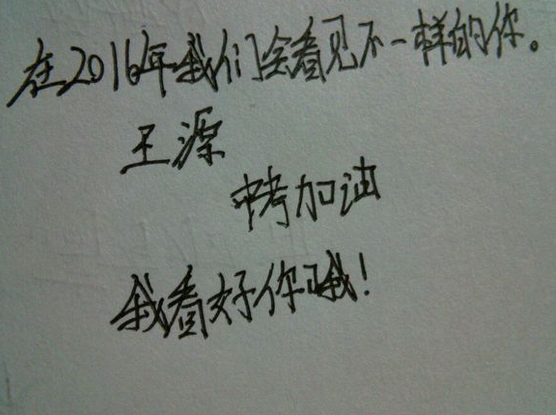 在2016年我们会看见不一样的你。
王源
中考加油
我看好你哦！